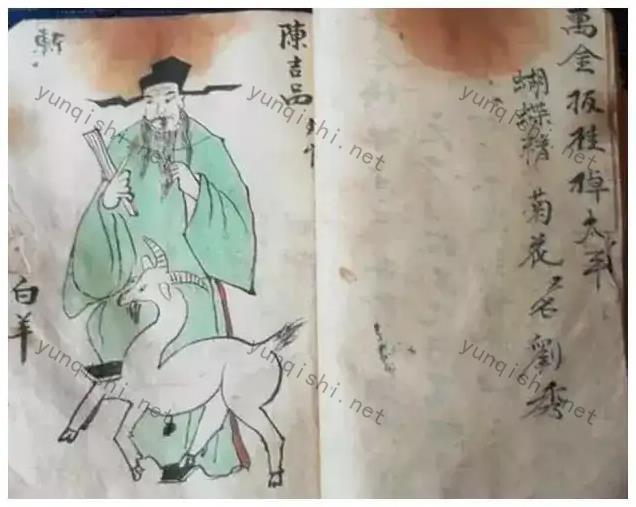 萬金扳桂太平
蝴蝶菊花名劉秀
陳吉品
白羊
yunqishi.net
yunqishi.net
yunqishi.net
yunqishi.net
yunqishi.net
yunqishi.net